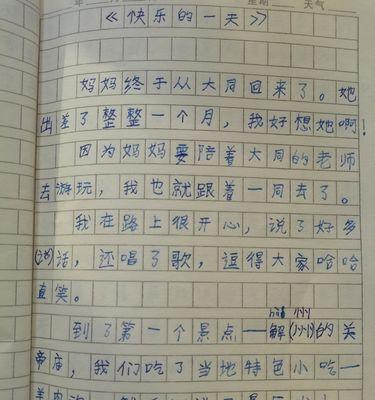 年 星期 天气
《快乐的一天》
妈妈终于从大同回来了。她
出差了整整一个月，我好想她啊！
因为妈妈要陪着大同的老师
去游玩，我也就跟着一同去了。
我在路上很开心，说了好多
话，还唱了歌，逗得大家哈哈
直笑。
到了第一个景点——解(州)的关
帝庙，我们吃了当地特色小吃—
羊肉